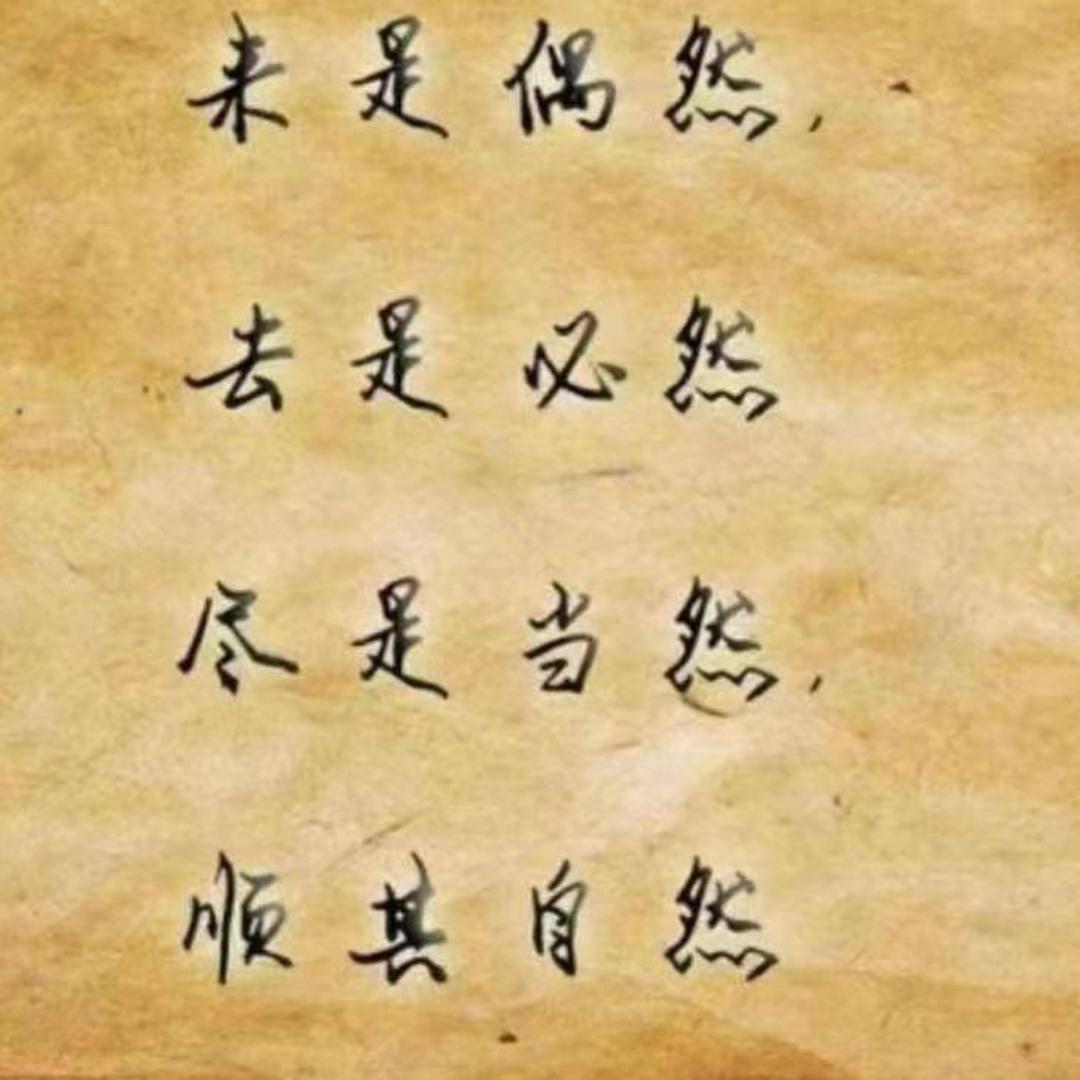 来是偶然,
去是必然
尽是当然,
顺其自然